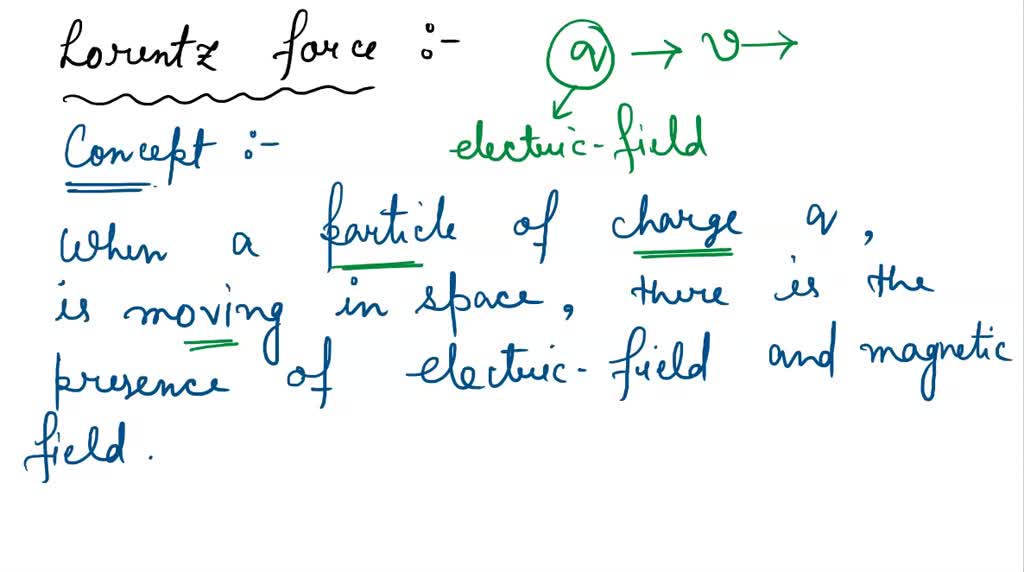 Lorentz force :-
q → v →
Concept :-
electric-field
When a particle of charge q,
is moving in space, there is the
presence of electric-field and magnetic
field.